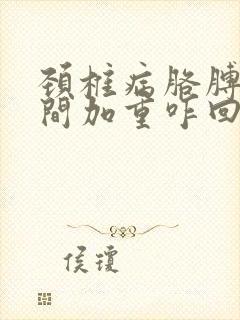 頸椎病胳膊
間加重咋回
侯瓊